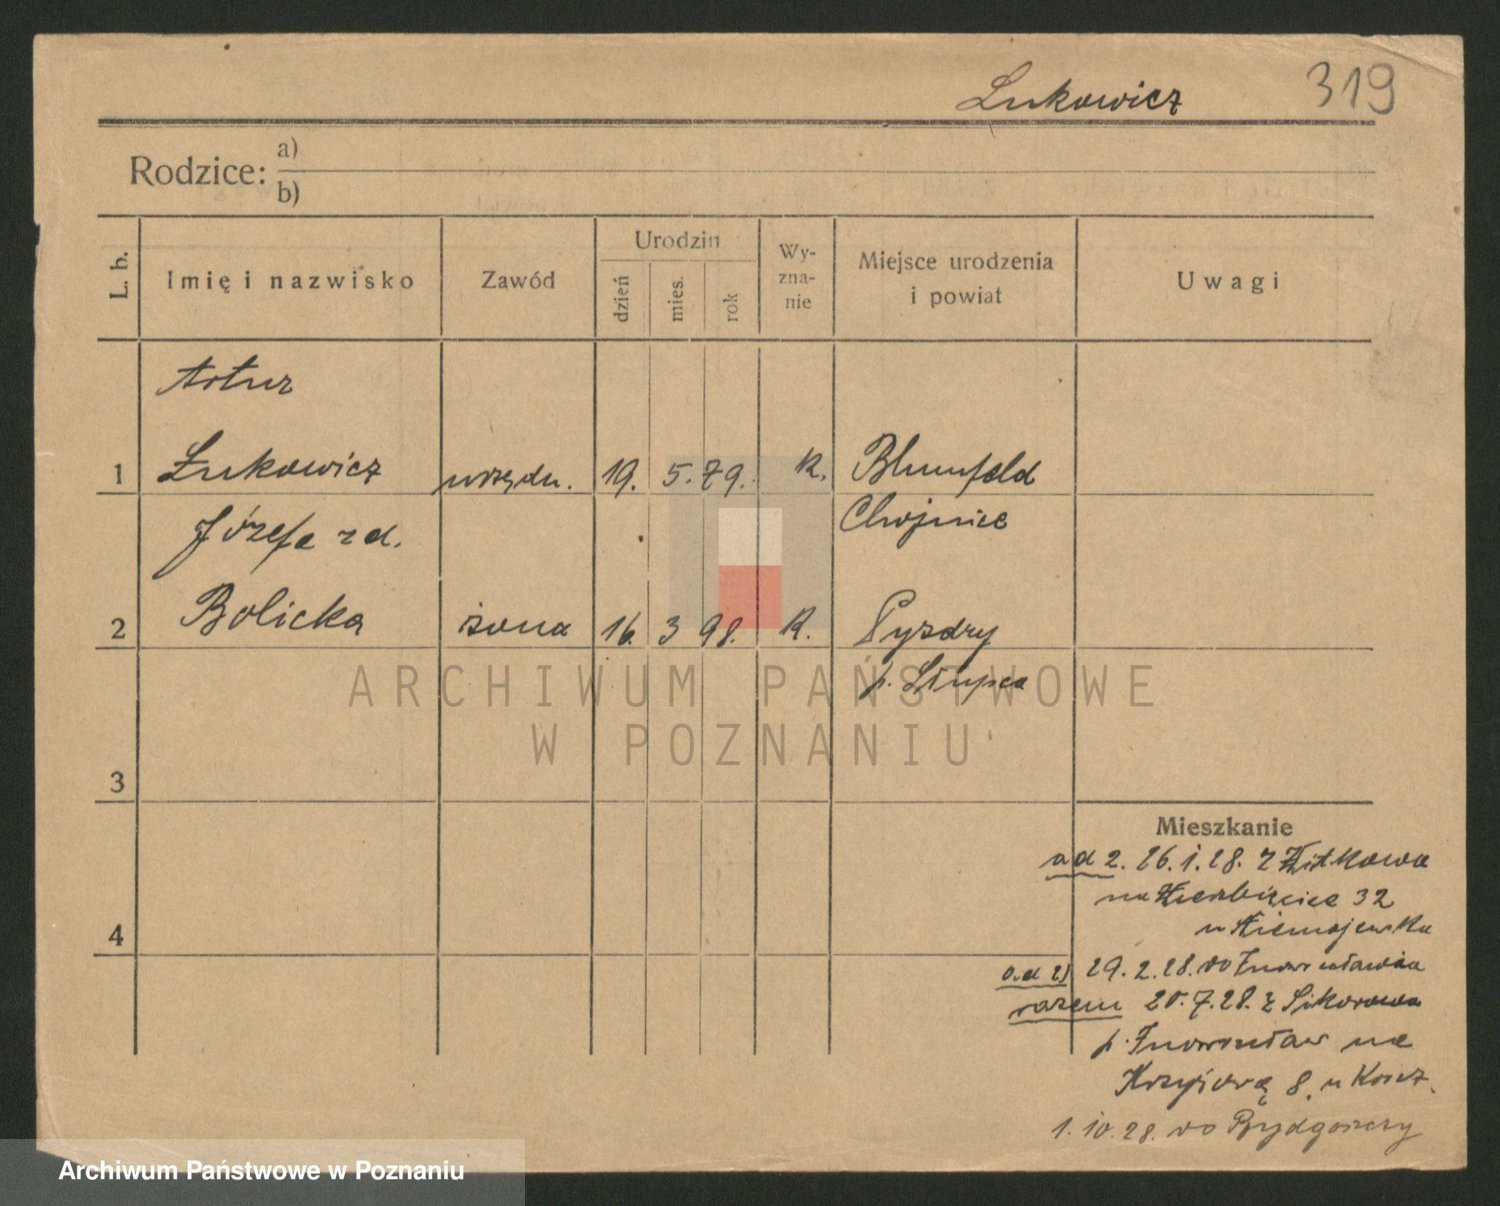 Lukowicz 319
Rodzice: a)
b)
L. b.
Imię i nazwisko
Zawód
Urodzin
dzień
mies.
rok
Wy-
zna-
nie
Miejsce urodzenia
i powiat
Uwagi
Artur
1 Łukowicz urzędn. 19. 5. 79. K. Blumfeld
Chojnice
Józefa z d.
2 Bolicka żona 16. 3 98. K. Pyzdry
p. Słupca
3
4
Mieszkanie
ad 2. 26.1.28. z Witkowa
na Wierzbięcice 32
u Niemojewska
ad 2) 29.2.28. do Inowrocławia
razem 20.7.28. z Sikorowa
p. Inowrocław na
Krzyżową 8. u
1.10.28. do Bydgoszczy
ARCHIWUM PAŃSTWOWE
W POZNANIU
Archiwum Państwowe w Poznaniu